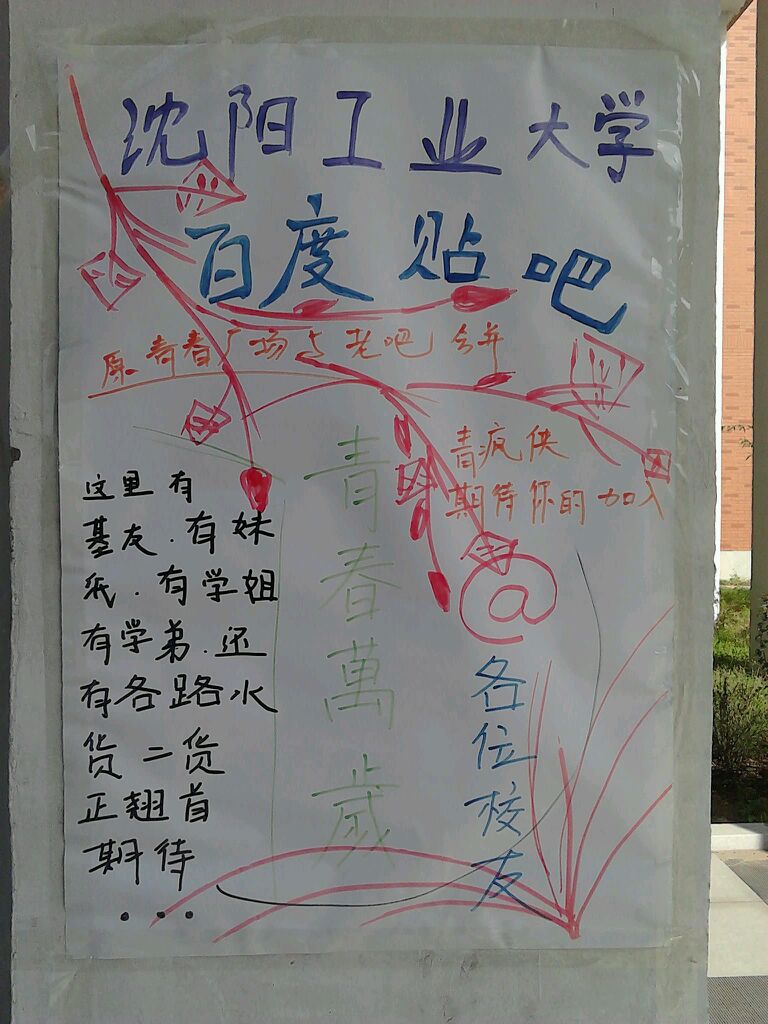 沈阳工业大学
百度贴吧
原青春广场与老吧合并
青疯侠
期待你的加入
@
各位校友
青春萬歲
这里有
基友.有妹
纸.有学姐
有学弟.还
有各路水
货二货
正翘首
期待
...